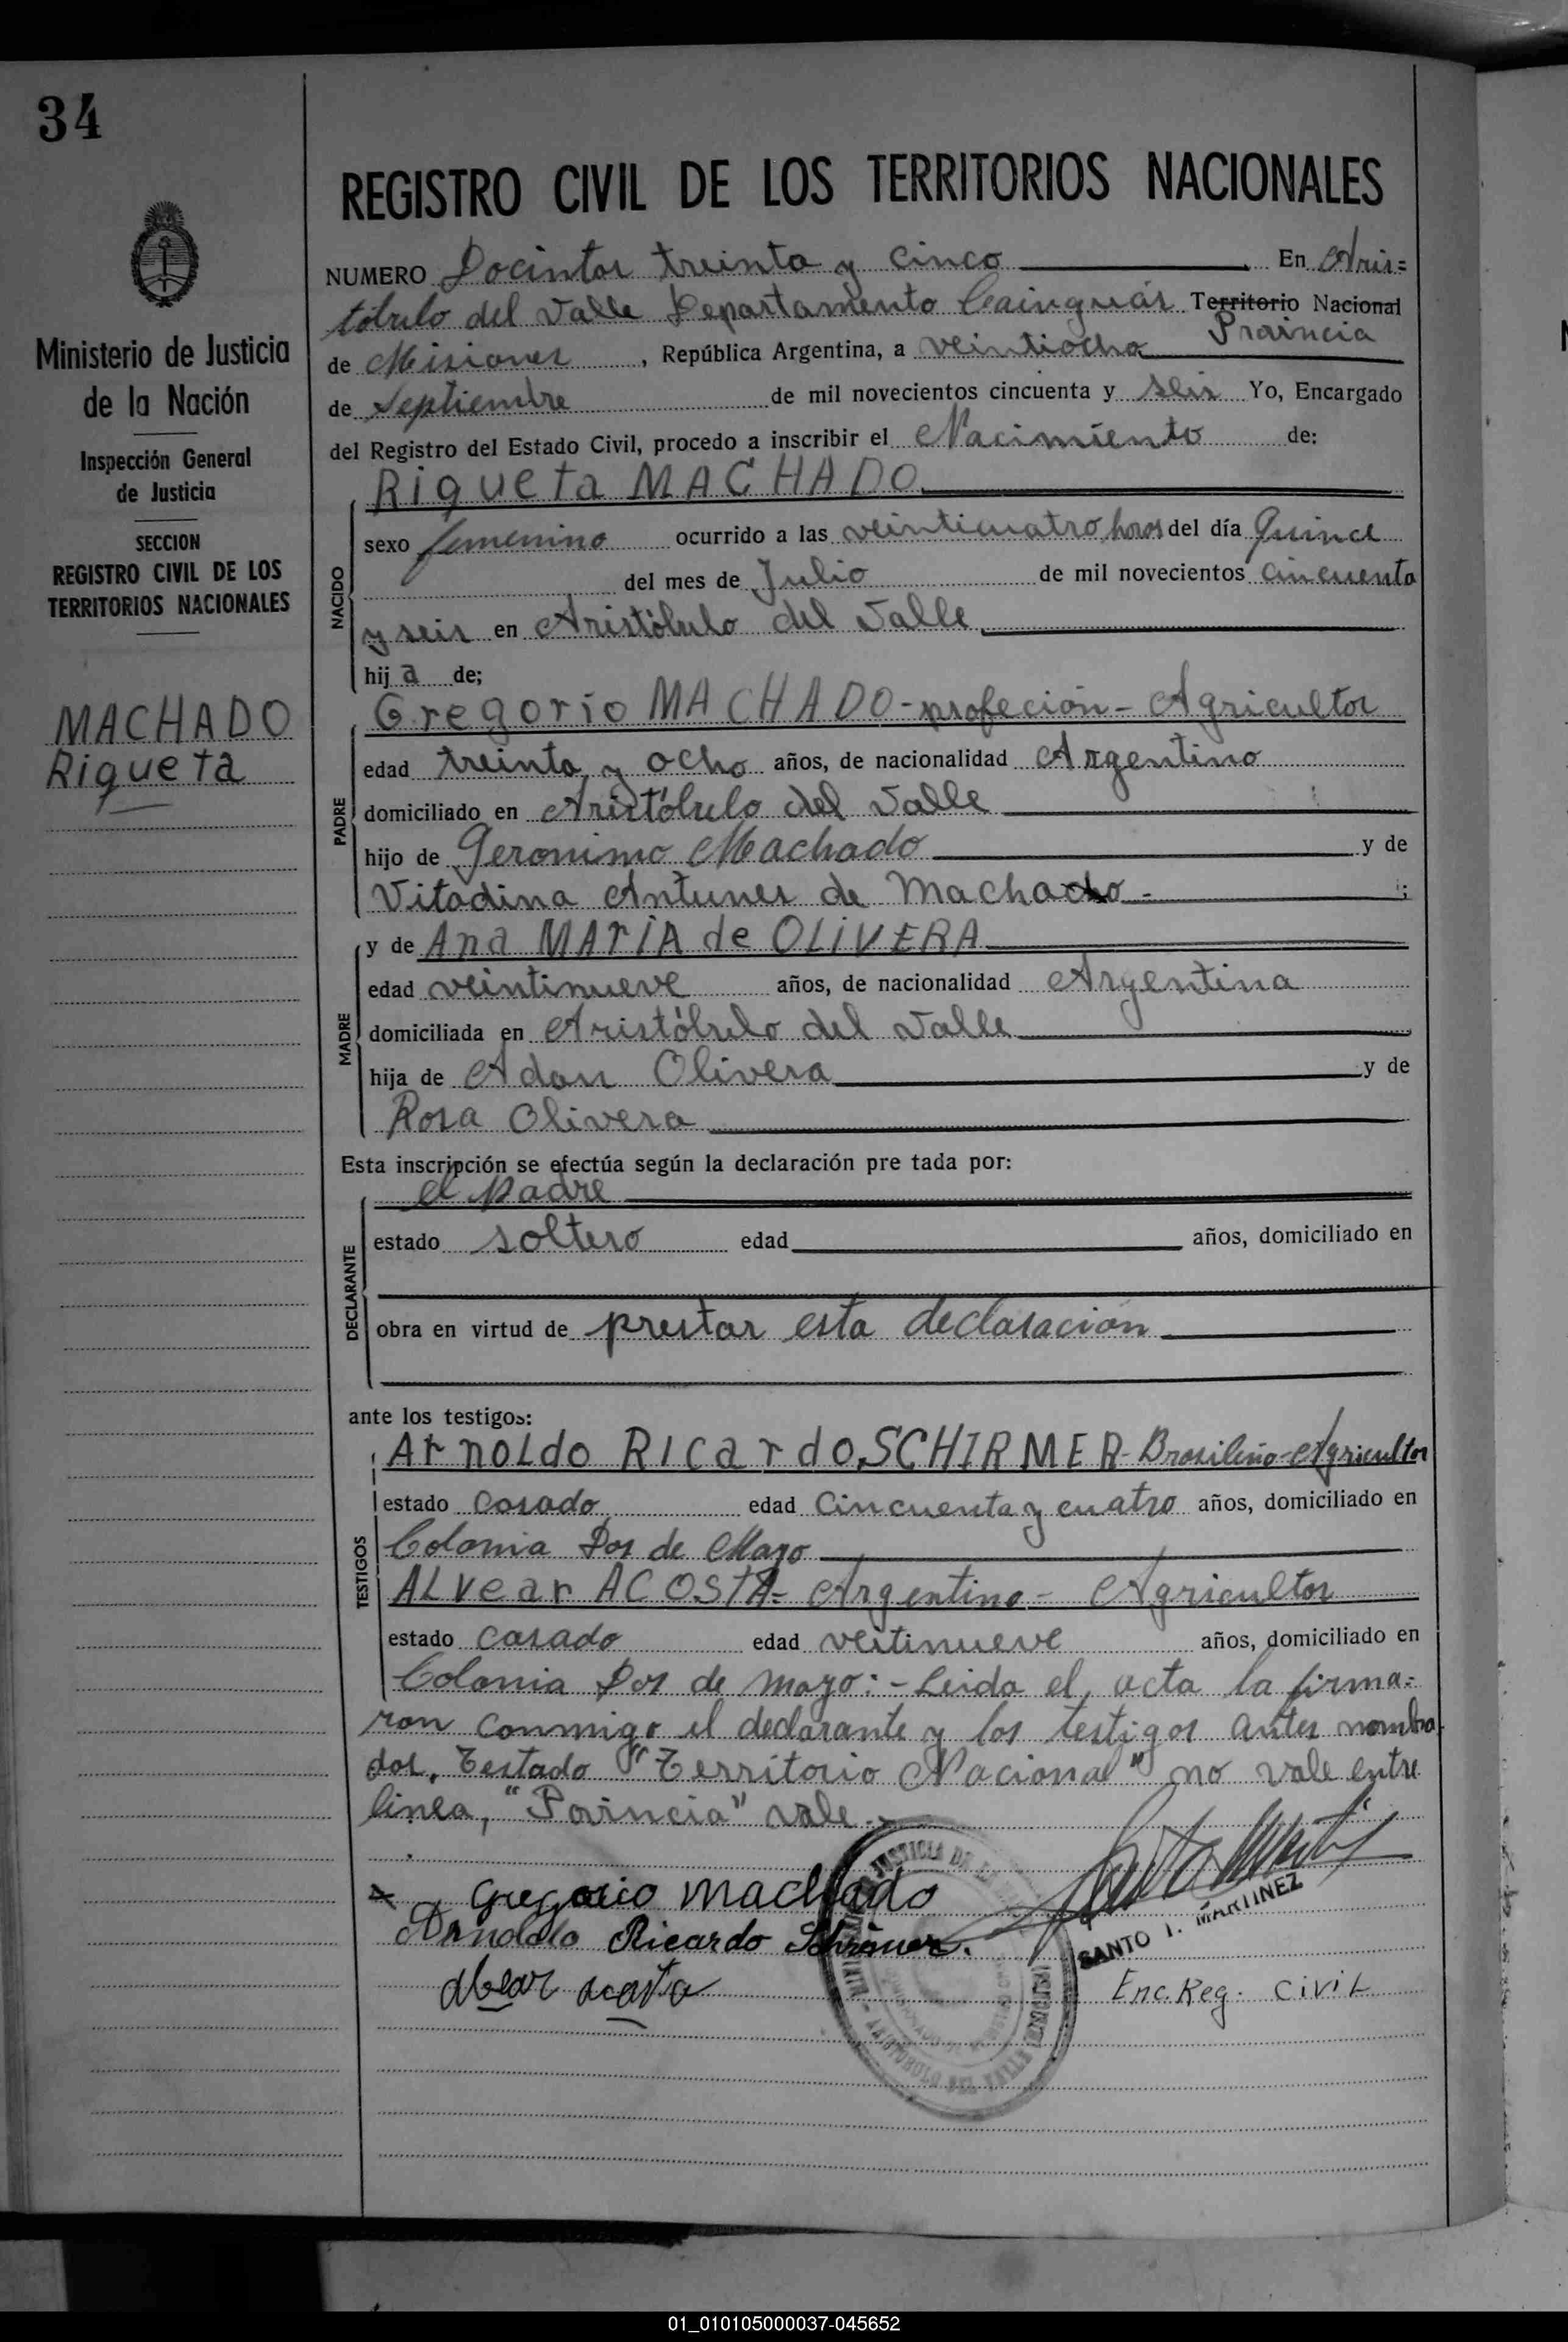 34
Ministerio de Justicia
de la Nación
Inspección General
de Justicia
SECCION
REGISTRO CIVIL DE LOS
TERRITORIOS NACIONALES
MACHADO
Riqueta
REGISTRO CIVIL DE LOS TERRITORIOS NACIONALES
NUMERO Docintos treinta y cinco En Aris=
tóbulo del Valle Departamento Cainguás Territorio Nacional
Provincia
de Misiones, República Argentina, a veintiocho
de Septiembre de mil novecientos cincuenta y seis Yo, Encargado
del Registro del Estado Civil, procedo a inscribir el Nacimiento de:
Riqueta MACHADO
NACIDO
sexo femenino ocurrido a las veinticuatro horas del día Quince
del mes de Julio de mil novecientos cincuenta
y seis en Aristóbulo del Valle
hija de;
Gregorio MACHADO-profeción-Agricultor
PADRE
edad treinta y ocho años, de nacionalidad Argentino
domiciliado en Aristóbulo del Valle
hijo de Geronimo Machado y de
Vitadina Antunes de Machado - ;
y de Ana MAriA de OLIVERA
MADRE
edad veintinueve años, de nacionalidad Argentina
domiciliada en Aristóbulo del Valle
hija de Adan Olivera y de
Rosa Olivera
Esta inscripción se efectúa según la declaración pre tada por:
el Padre
DECLARANTE
estado soltero edad años, domiciliado en
obra en virtud de prestar esta declaración
ante los testigos:
ArnoLdo RICardo SCHIRMER-Brasileño-Agricultor
TESTIGOS
estado Casado edad Cincuenta y cuatro años, domiciliado en
Colonia Dos de Mayo
ALvear ACOSTA= Argentino- Agricultor
estado casado edad veitinueve años, domiciliado en
Colonia Dos de mayo:-Leida el acta la firma=
ron conmigo el declarante y los testigos antes nombra
dos. Testado "Territorio Nacional" no vale entre
linea, "Povincia" vale.-
Gregorio machado
Arnoldo Ricardo Schirmer.
Alvear Acosta
SANTO I. MARTINEZ
Enc. Reg. Civil
01_010105000037-045652